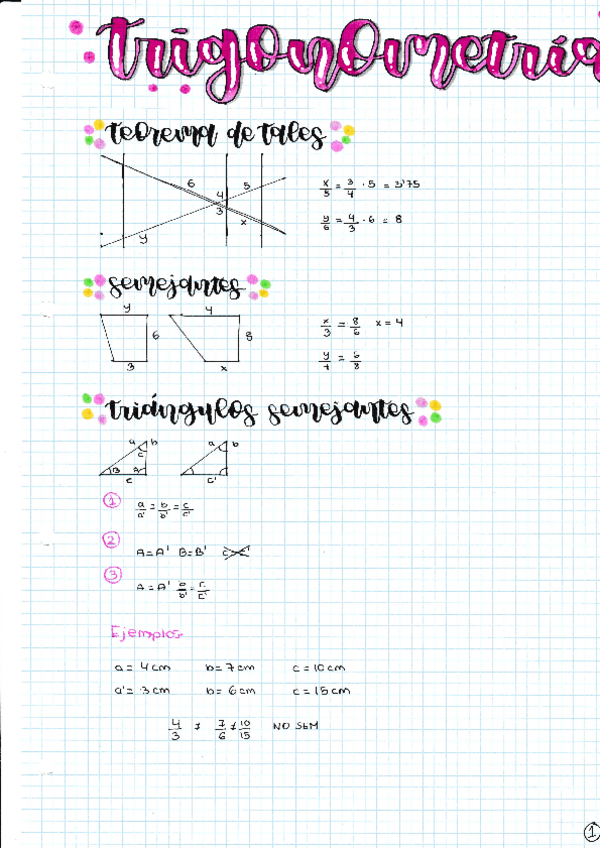 trigonometría
teorema de tales
6 4 5
3 x
y
x/5 = 3/4 · 5 = 3'75
y/6 = 4/3 · 6 = 8
semejantes
y 4
6 8
3 x
x/3 = 8/6 x = 4
y/4 = 6/8
triángulos semejantes
a b a b
C
B A
c c'
1 a/a' = b/b' = c/c'
2 A = A' B = B'
3 A = A' b/b' = c/c'
Ejemplos
a = 4 cm b = 7 cm c = 10 cm
a' = 3 cm b = 6 cm c = 15 cm
4/3 ≠ 7/6 ≠ 10/15 NO SEM
1